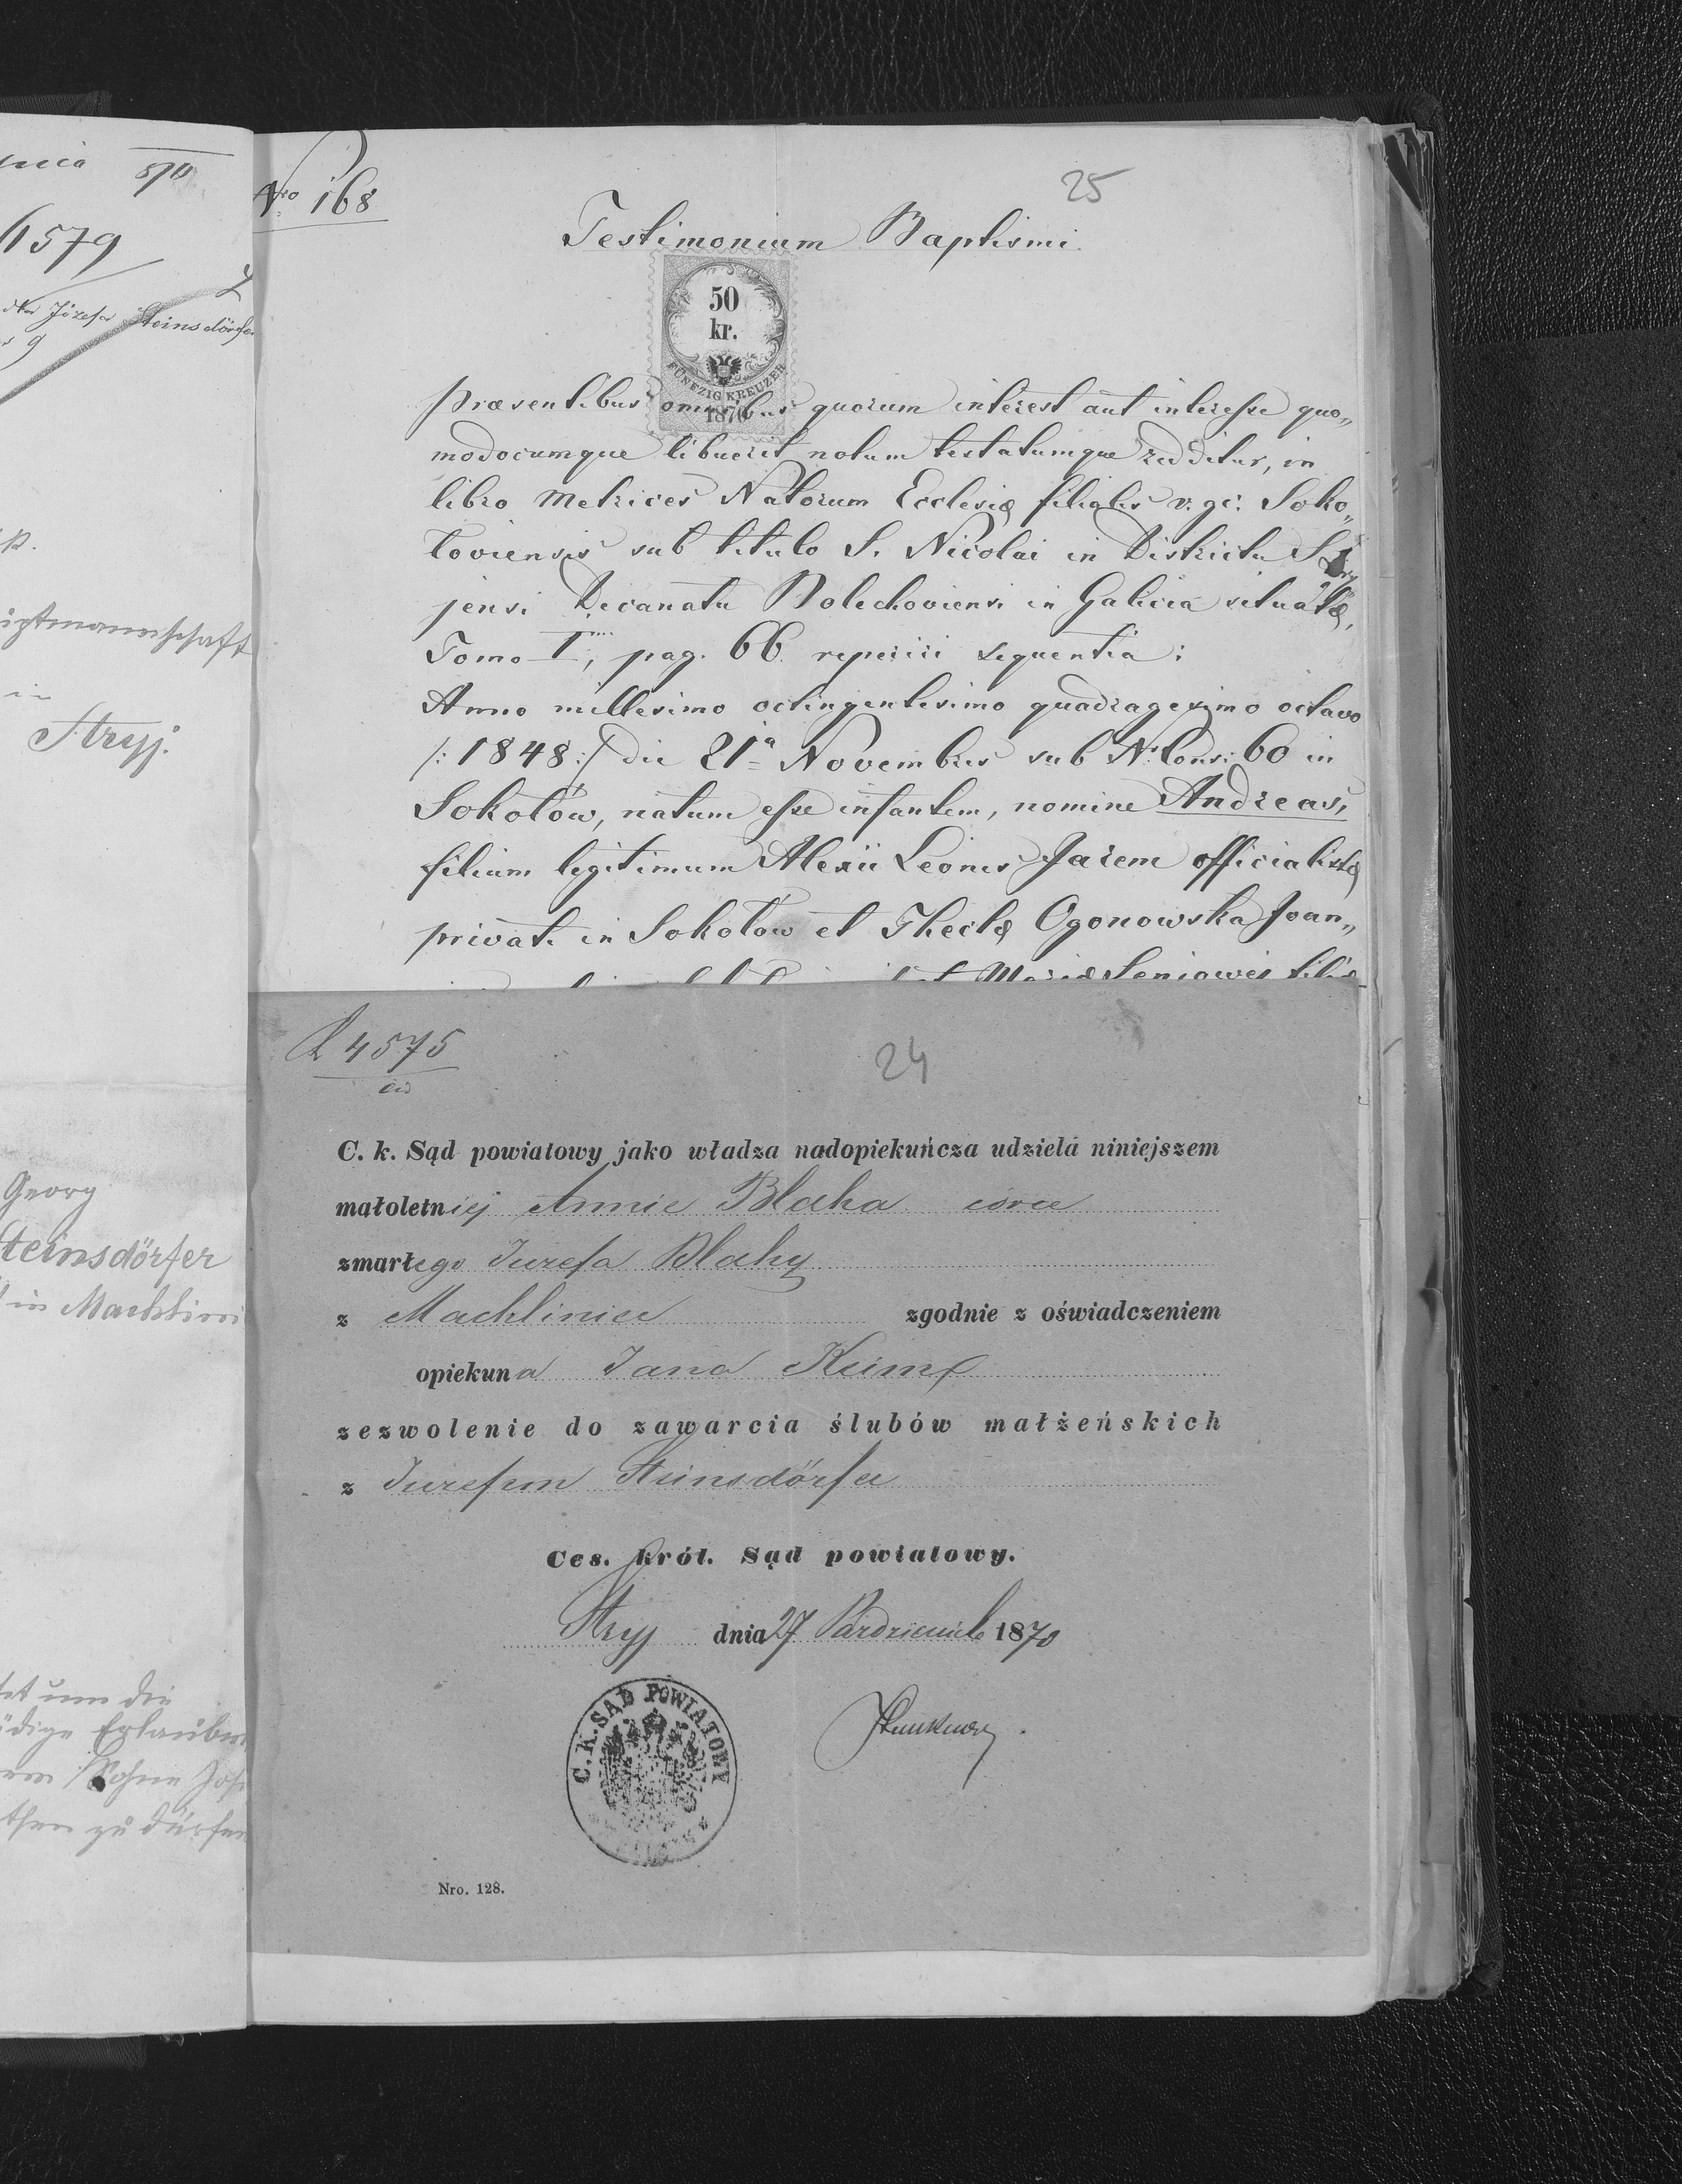 870
1579
Józefa Steinsdörfer
9
uptmannschaft
in
Stryj.
Georg
teinsdörfer
in Machlini
tet um die
Erlaubn
Sohne Jos
zu dürfen
Nro 168
25
Testimonium Baptismi
50
kr.
FÜNFZIG KREUZER
1870
Præsentibus omnibus quorum interest aut interesse quo„
modocumque libuerit notum testatumque redditur, in
libro Metrices Natorum Ecclesiæ filialis r: gr: Soko„
łoviensis sub titulo S. Nicolai in Districtu Stry
jensi Decanatu Bolechoviensi in Galicia situatæ,
Tomo I, pag. 66 reperiri sequentia:
Anno millesimo octingentesimo quadragesimo octavo
/: 1848 :/ die 21a Novembris sub Nr. Cons: 60 in
Sokołów, natum esse infantem, nomine Andreas,
filium legitimum Alexii Leonis Jarem officialistæ
privati in Sokołów et Theclæ Ogonowska Joan„
et Mariæ Seniowei filiæ
L 4575
24
C. k. Sąd powiatowy jako władza nadopiekuńcza udziela niniejszem
małoletniej Annie Blaha córce
zmarłego Jurefa Blahy
z Machliniec zgodnie z oświadczeniem
opiekuna Jana Keim
zezwolenie do zawarcia ślubów małżeńskich
z Jurefem Steinsdörfer
Ces. król. Sąd powiatowy.
Stryj dnia 27 Pazdziernik 1870
C. K. SĄD POWIATOWY
Nro. 128.